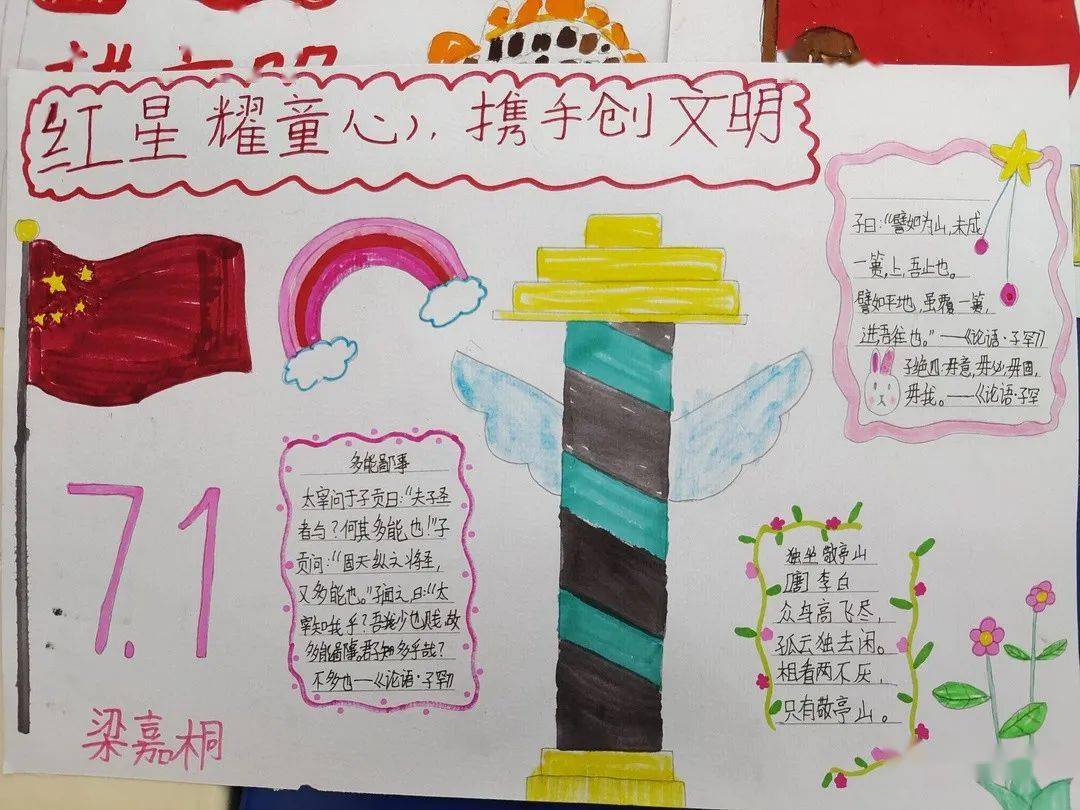 红星耀童心,携手创文明
子曰:“譬如为山,未成
一篑,止,吾止也。
譬如平地,虽覆一篑,
进,吾往也。”——《论语·子罕》
子绝四:毋意,毋必,毋固,
毋我。——《论语·子罕
7.1
多能鄙事
太宰问于子贡曰:“夫子圣
者与?何其多能也!”子
贡问:“固天纵之将圣,
又多能也。”子闻之曰:“太
宰知我乎?吾我少也贱,故
多能鄙事。君子知多乎哉?
不多也——《论语·子罕》
独坐敬亭山
[唐]李白
众鸟高飞尽,
孤云独去闲。
相看两不厌,
只有敬亭山。
梁嘉桐